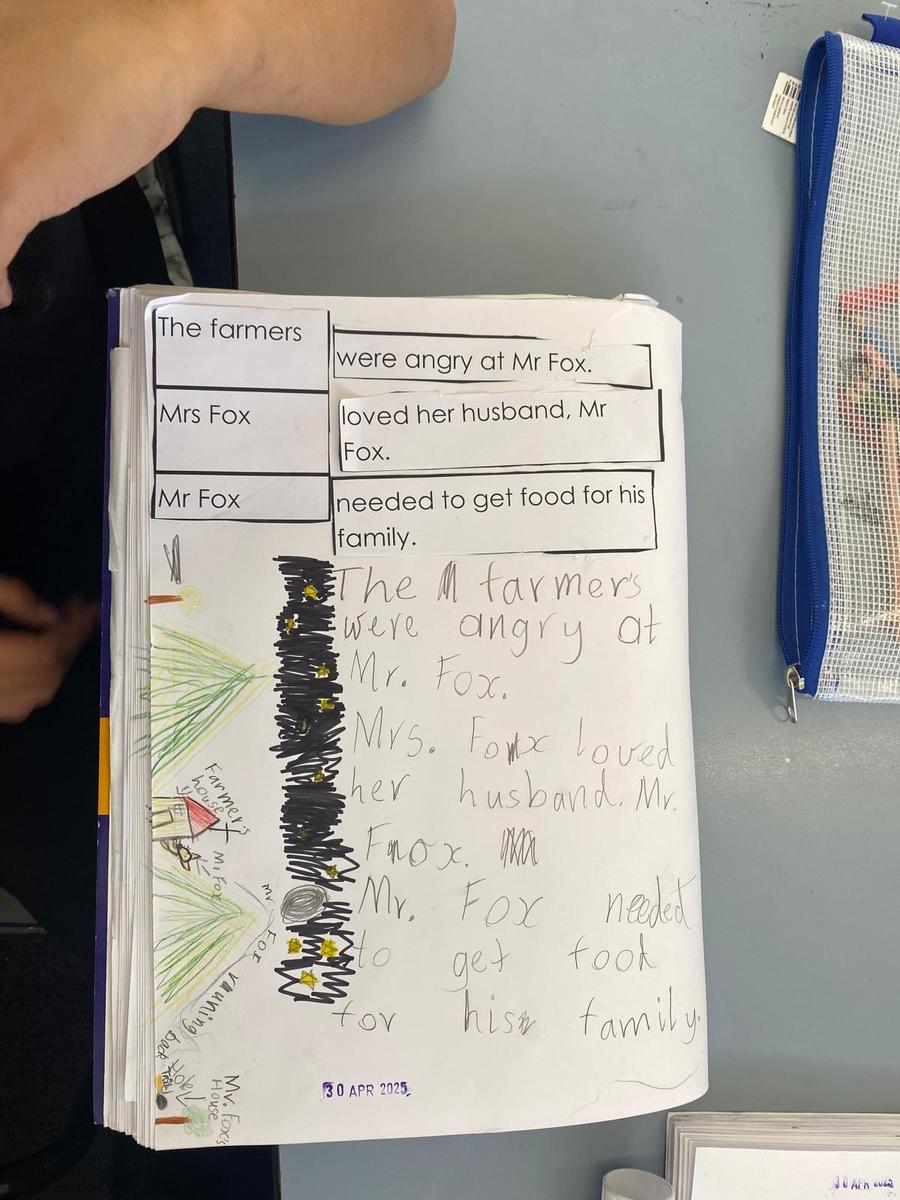 The farmers
were angry at Mr Fox.
Mrs Fox
loved her husband, Mr
Fox.
Mr Fox
needed to get food for his
family.
The farmer's
were angry at
Mr. Fox.
Mrs. Fox loved
her husband. Mr.
Fox.
Mr. Fox needed
to get food
for his family.
Farmer's
house
Mr Fox
Mr Fox running
back
Mr. Fox's
House
30 APR 2025
30 APR 2025